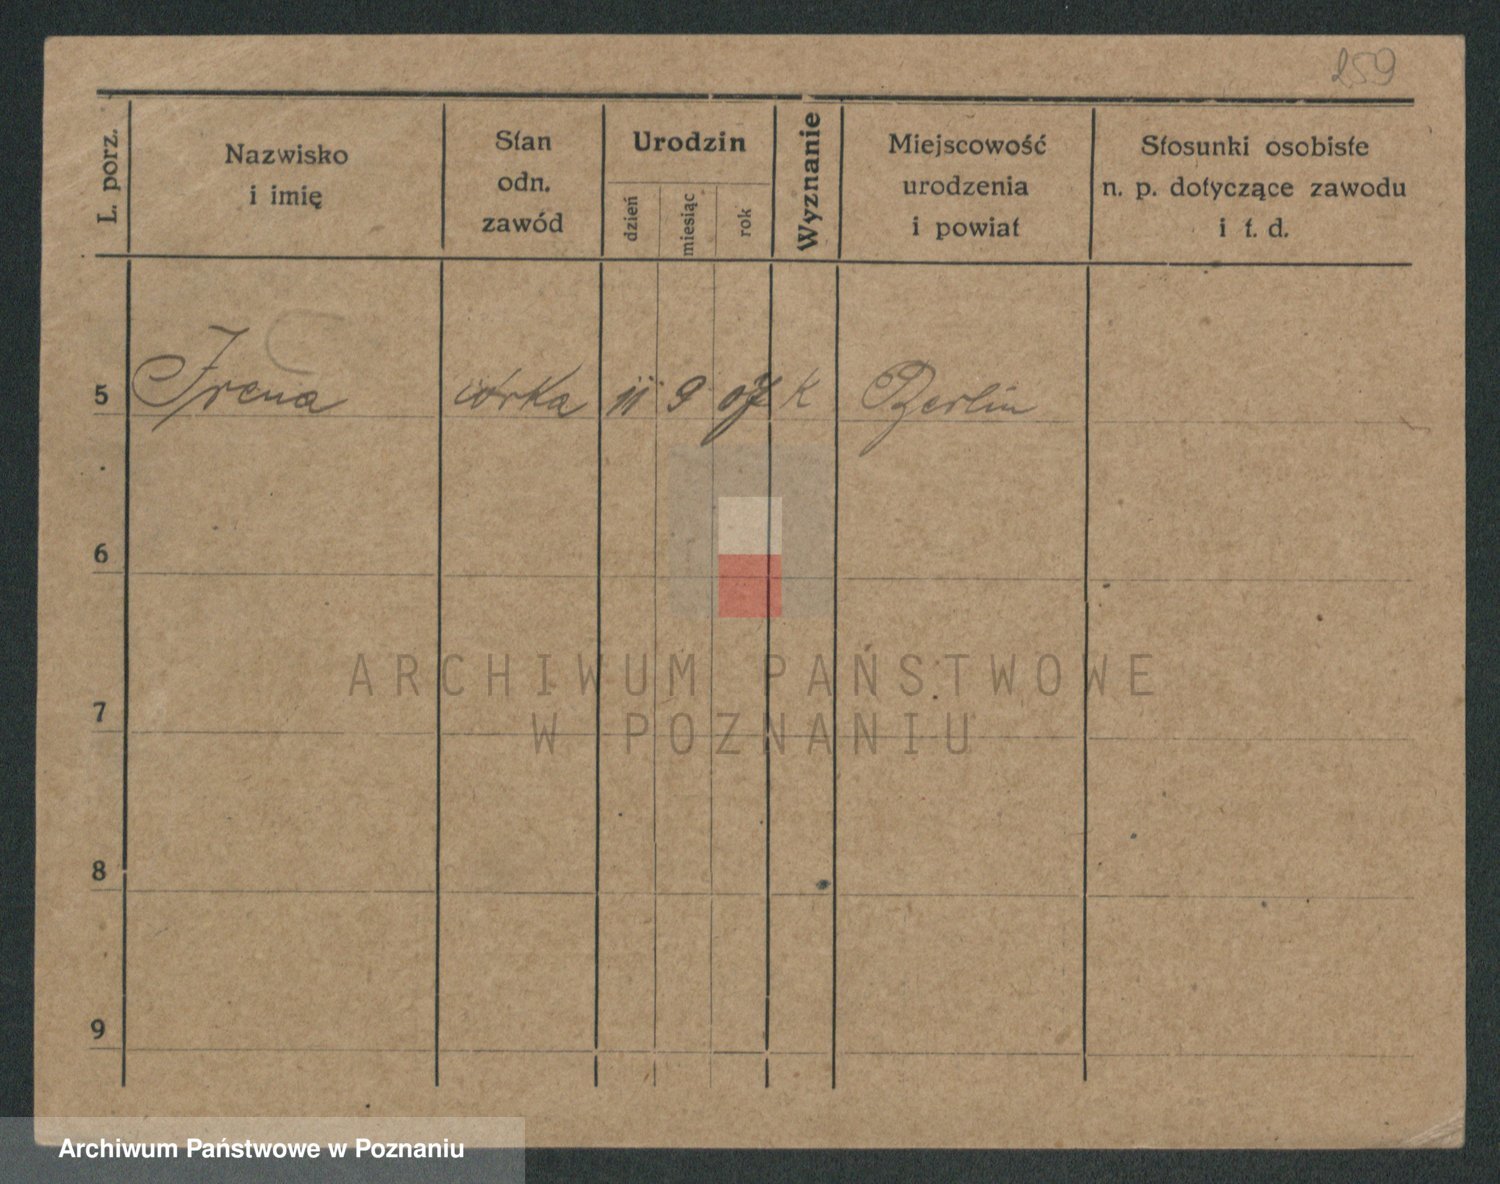 259
L. porz.
Nazwisko
i imię
Stan
odn.
zawód
Urodzin
dzień
miesiąc
rok
Wyznanie
Miejscowość
urodzenia
i powiat
Stosunki osobiste
n. p. dotyczące zawodu
i t. d.
5 Irena córka 11 9 07 k Berlin
6
7
8
9
ARCHIWUM PAŃSTWOWE
W POZNANIU
Archiwum Państwowe w Poznaniu